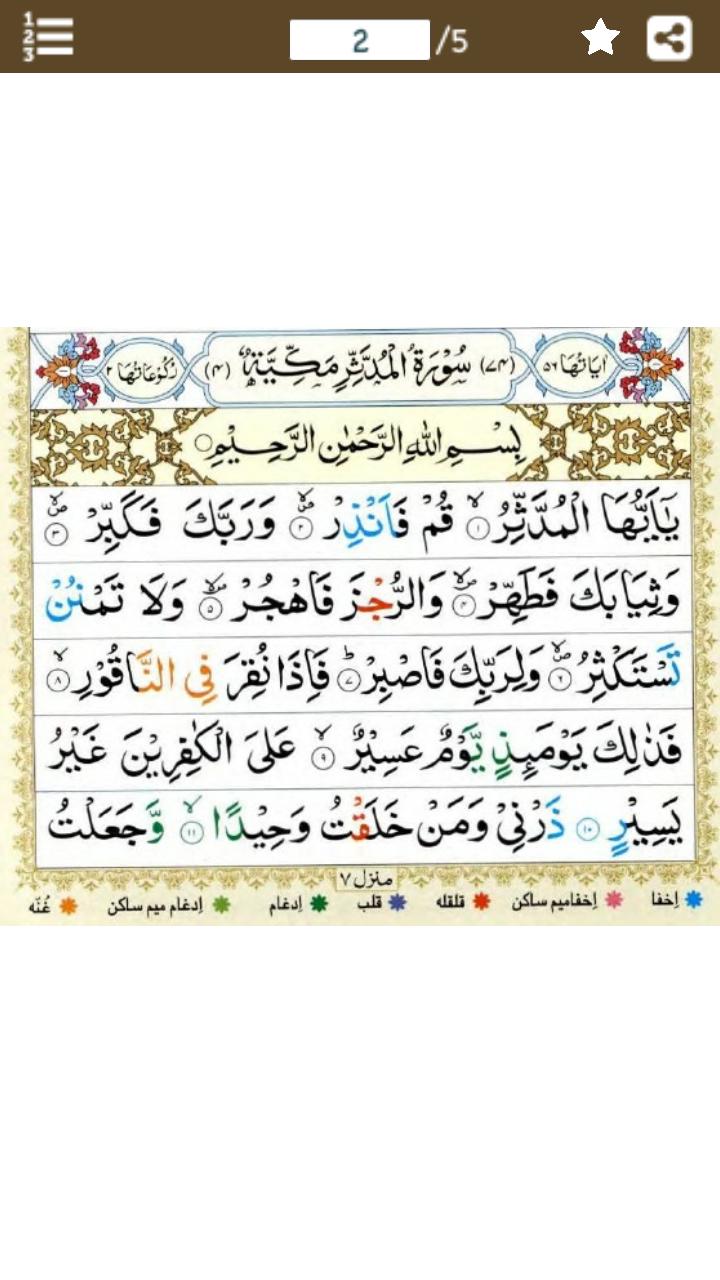 1
2
3
2 /5
اٰيَاتُهَا ٥٦ (٧٤) سُوْرَةُ الْمُدَّثِّرِ مَكِّيَّةٌ (٤) رُكُوْعَاتُهَا ٢
بِسْمِ اللهِ الرَّحْمٰنِ الرَّحِيْمِ
يٰۤاَيُّهَا الْمُدَّثِّرُ ۙ﴿۱﴾ قُمْ فَاَنْذِرْ ۪ۙ﴿۲﴾ وَرَبَّكَ فَكَبِّرْ ۪ۙ﴿۳﴾
وَثِيَابَكَ فَطَهِّرْ ۪ۙ﴿۴﴾ وَالرُّجْزَ فَاهْجُرْ ۪ۙ﴿۵﴾ وَلَا تَمْنُنْ
تَسْتَكْثِرُ ۪ۙ﴿۶﴾ وَلِرَبِّكَ فَاصْبِرْ ؕ﴿۷﴾ فَاِذَا نُقِرَ فِى النَّاقُوْرِ ۙ﴿۸﴾
فَذٰلِكَ يَوْمَىِٕذٍ يَّوْمٌ عَسِيْرٌ ۙ﴿۹﴾ عَلَى الْكٰفِرِيْنَ غَيْرُ
يَسِيْرٍ ﴿۱۰﴾ ذَرْنِىْ وَمَنْ خَلَقْتُ وَحِيْدًا ۙ﴿۱۱﴾ وَّجَعَلْتُ
منزل ٧
إخفا إخفامیم ساکن قلقله قلب إدغام إدغام میم ساکن غُنّه